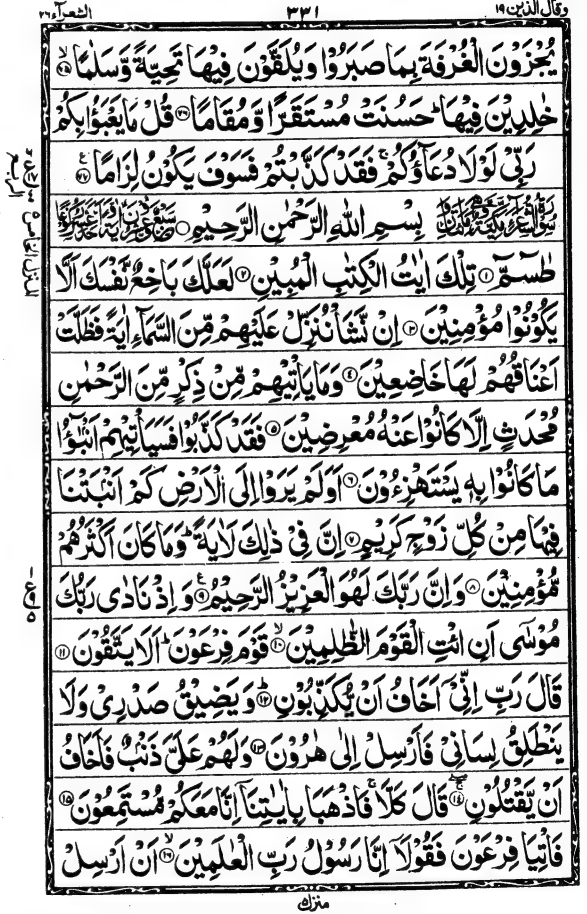 وقال الذين ١٩
٣٣١
الشعرآء ٢٦
يُجْزَوْنَ الْغُرْفَةَ بِمَا صَبَرُوْا وَيُلَقَّوْنَ فِيْهَا تَحِيَّةً وَّسَلٰمًا ۙ٧٥
خٰلِدِيْنَ فِيْهَا ؕ حَسُنَتْ مُسْتَقَرًّا وَّمُقَامًا ٧٦ قُلْ مَا يَعْبَؤُا بِكُمْ
رَبِّيْ لَوْلَا دُعَآؤُكُمْ ۚ فَقَدْ كَذَّبْتُمْ فَسَوْفَ يَكُوْنُ لِزَامًا ٧٧ ع
بِسْمِ اللهِ الرَّحْمٰنِ الرَّحِيْمِ
طٰسٓمّٓ ١ تِلْكَ اٰيٰتُ الْكِتٰبِ الْمُبِيْنِ ٢ لَعَلَّكَ بَاخِعٌ نَّفْسَكَ اَلَّا
يَكُوْنُوْا مُؤْمِنِيْنَ ٣ اِنْ نَّشَاْ نُنَزِّلْ عَلَيْهِمْ مِّنَ السَّمَآءِ اٰيَةً فَظَلَّتْ
اَعْنَاقُهُمْ لَهَا خَاضِعِيْنَ ٤ وَمَا يَاْتِيْهِمْ مِّنْ ذِكْرٍ مِّنَ الرَّحْمٰنِ
مُحْدَثٍ اِلَّا كَانُوْا عَنْهُ مُعْرِضِيْنَ ٥ فَقَدْ كَذَّبُوْا فَسَيَاْتِيْهِمْ اَنْۢبٰٓؤُا
مَا كَانُوْا بِهٖ يَسْتَهْزِءُوْنَ ٦ اَوَلَمْ يَرَوْا اِلَى الْاَرْضِ كَمْ اَنْۢبَتْنَا
فِيْهَا مِنْ كُلِّ زَوْجٍ كَرِيْمٍ ٧ اِنَّ فِيْ ذٰلِكَ لَاٰيَةً ؕ وَمَا كَانَ اَكْثَرُهُمْ
مُّؤْمِنِيْنَ ٨ وَاِنَّ رَبَّكَ لَهُوَ الْعَزِيْزُ الرَّحِيْمُ ٩ ع وَاِذْ نَادٰى رَبُّكَ
مُوْسٰٓى اَنِ ائْتِ الْقَوْمَ الظّٰلِمِيْنَ ۙ١٠ قَوْمَ فِرْعَوْنَ ؕ اَلَا يَتَّقُوْنَ ١١
قَالَ رَبِّ اِنِّيْٓ اَخَافُ اَنْ يُّكَذِّبُوْنِ ؕ١٢ وَيَضِيْقُ صَدْرِيْ وَلَا
يَنْطَلِقُ لِسَانِيْ فَاَرْسِلْ اِلٰى هٰرُوْنَ ١٣ وَلَهُمْ عَلَيَّ ذَنْۢبٌ فَاَخَافُ
اَنْ يَّقْتُلُوْنِ ۚ١٤ قَالَ كَلَّا ۚ فَاذْهَبَا بِاٰيٰتِنَآ اِنَّا مَعَكُمْ مُّسْتَمِعُوْنَ ١٥
فَاْتِيَا فِرْعَوْنَ فَقُوْلَآ اِنَّا رَسُوْلُ رَبِّ الْعٰلَمِيْنَ ۙ١٦ اَنْ اَرْسِلْ
منزل ٥